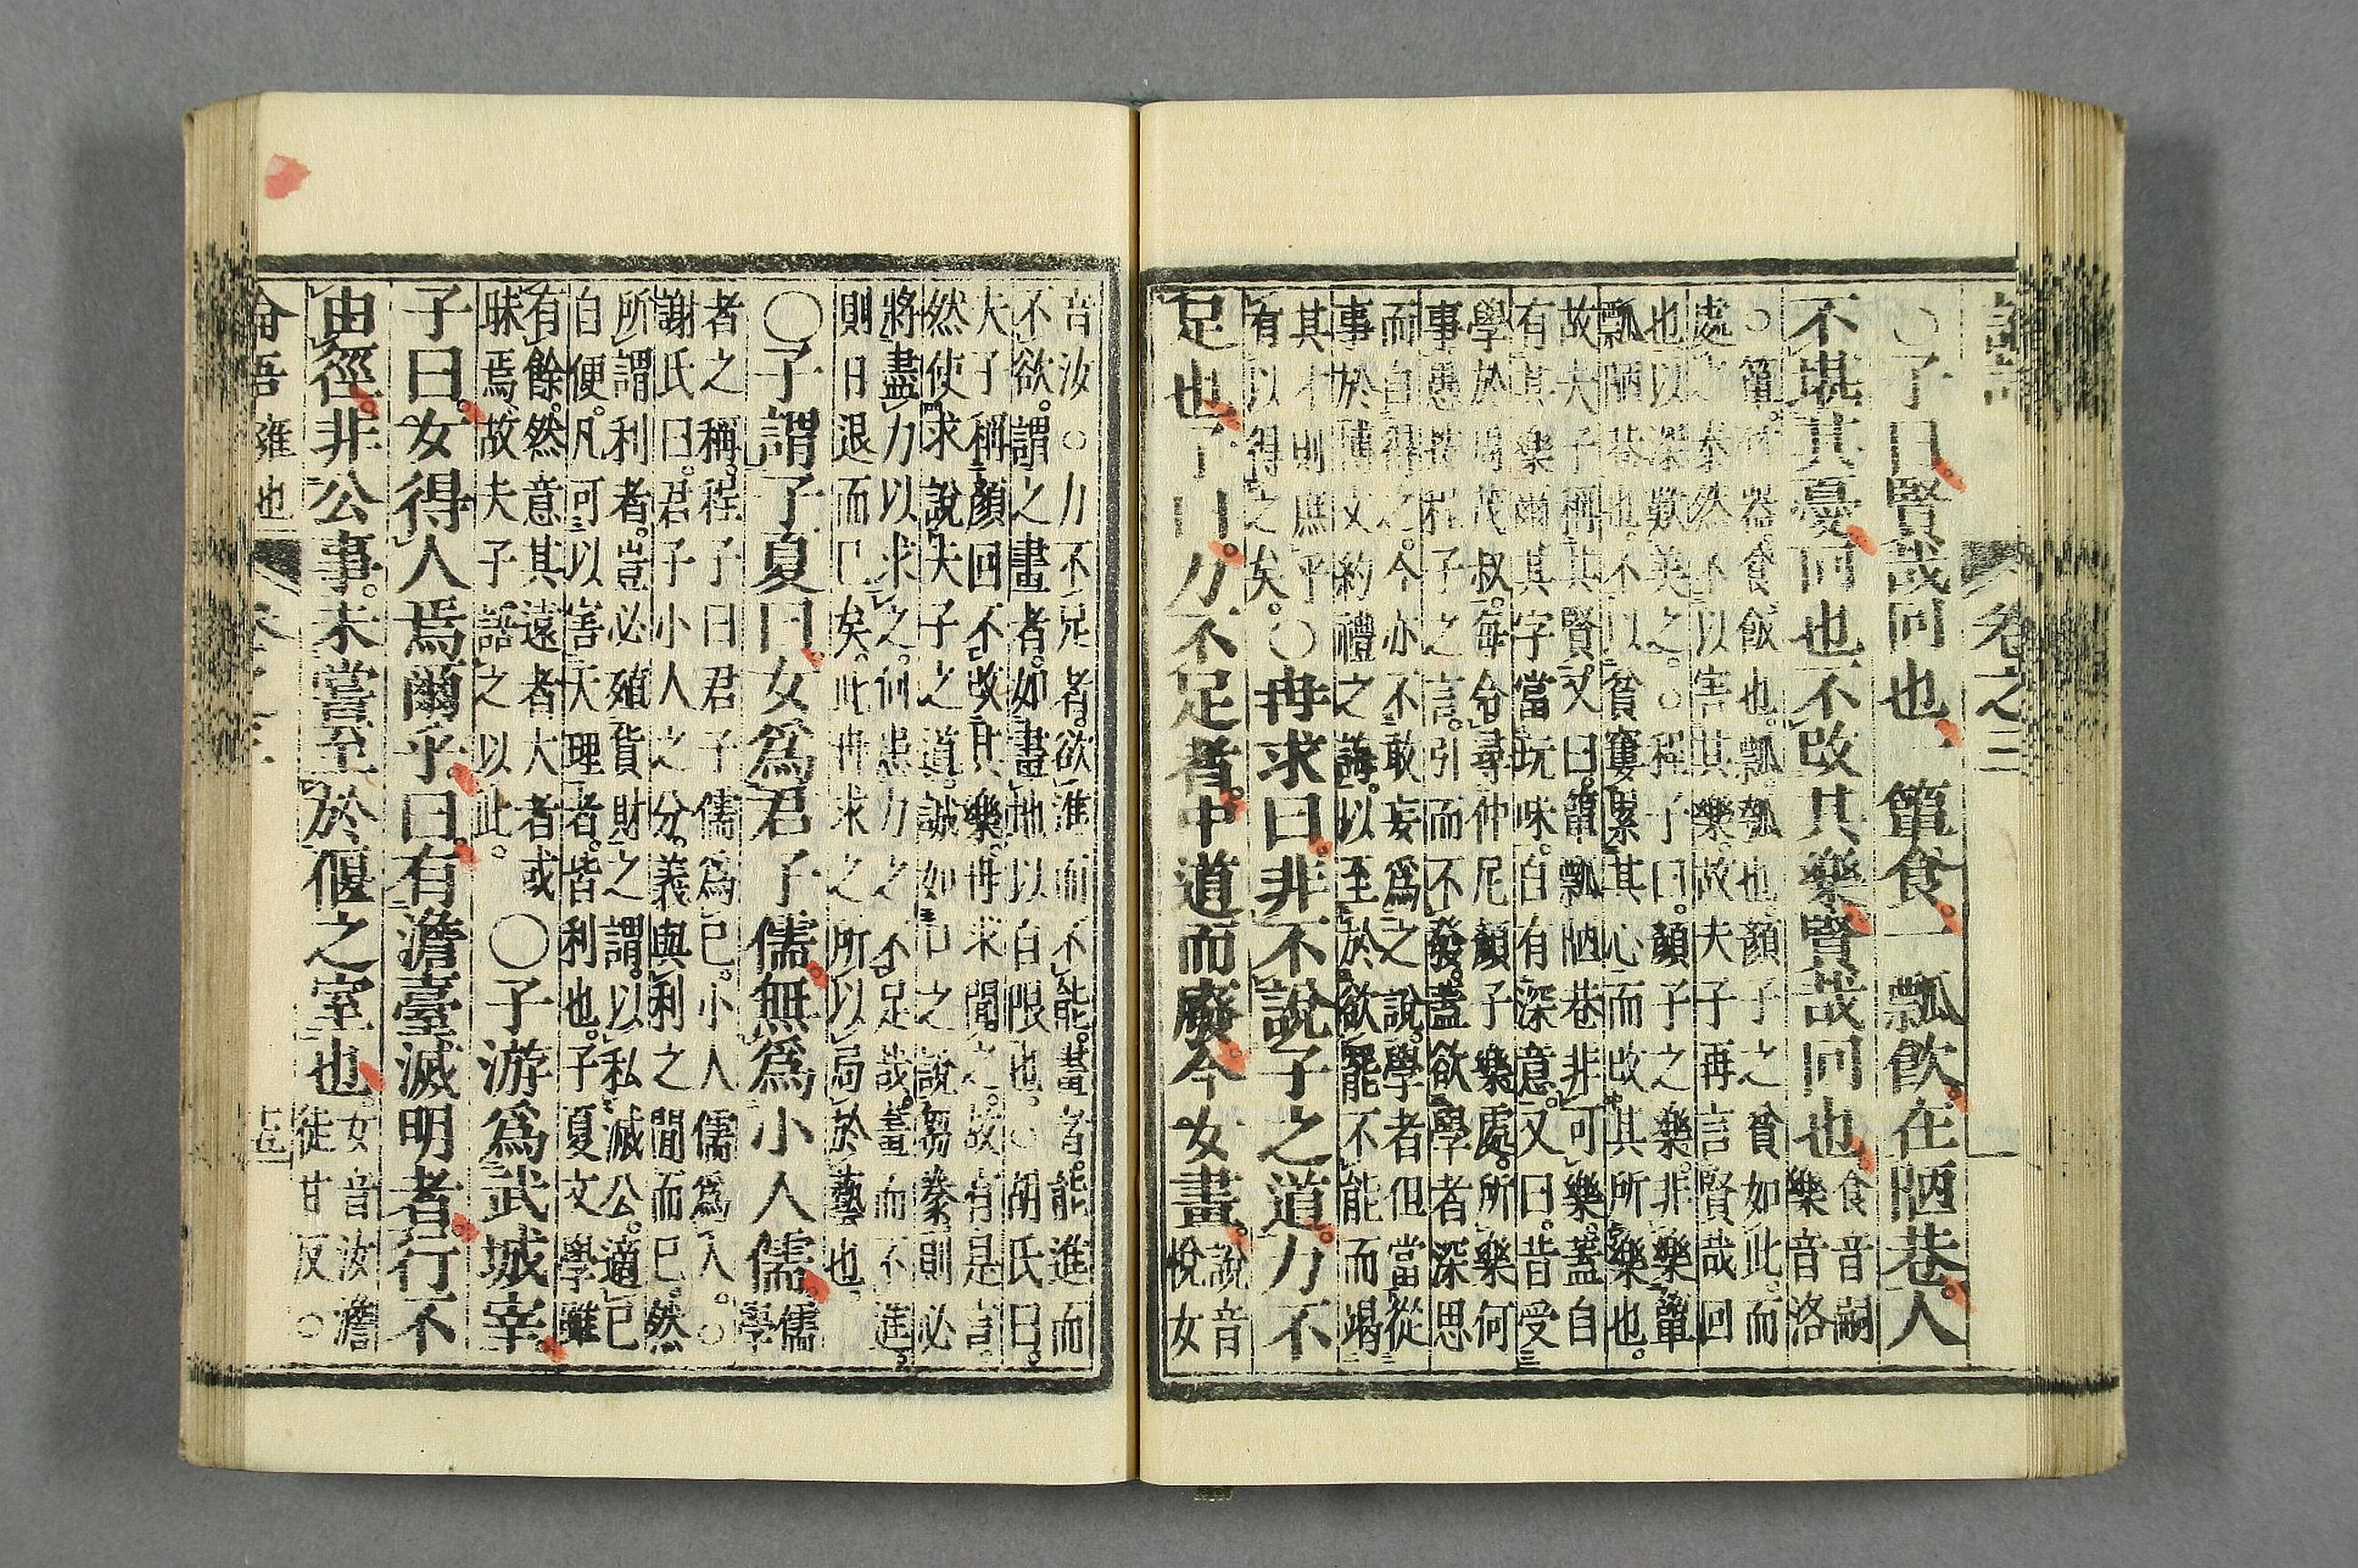 卷之三
○子曰賢哉回也一簞食一瓢飲在陋巷人
不堪其憂回也不改其樂賢哉回也
食音嗣
樂音洛
○簞。竹器。食飯也。瓢。瓠也。顏子之貧如此。而
處之泰然不以害其樂。故夫子再言賢哉回
也以深歎美之。○程子曰。顏子之樂。非樂簞
瓢陋巷也。不以貧窶累其心而改其所樂也。
故夫子稱其賢。又曰。簞瓢陋巷非可樂。蓋自
有其樂爾其字當玩味。自有深意。又曰。昔受
學於周茂叔。每令尋仲尼顏子樂處。所樂何
事愚按程子之言。引而不發。蓋欲學者深思
而自得之。今亦不敢妄爲之說。學者但當從
事於博文約禮之誨。以至於欲罷不能而竭
其才則庶乎
有以得之矣。
○冉求曰。非不說子之道。力不
足也。子曰。力不足者。中道而廢。今女畫。
說音
悅女
音汝○力不足者。欲進而不能。畫者。能進而
不欲。謂之畫者。如畫地以自限也。○胡氏曰。
夫子稱顏回不改其樂。冉求聞之。故有是言。
然使求說夫子之道。誠如口之說芻豢。則必
將盡力以求之。何患力之不足哉。畫而不進。
則日退而已矣。此冉求之所以局於藝也。
○子謂子夏曰。女爲君子儒。無爲小人儒。
儒
學
者之稱。程子曰君子儒爲己。小人儒爲人。○
謝氏曰。君子小人之分。義與利之閒而已。然
所謂利者。豈必殖貨財之謂。以私滅公。適己
自便。凡可以害天理者。皆利也。子夏文學雖
有餘。然意其遠者大者或
昧焉。故夫子語之以此。
○子游爲武城宰。
子曰。女得人焉爾乎。曰。有澹臺滅明者。行不
由徑。非公事。未嘗至於偃之室也。
女音汝澹
徒甘反○
論語 雍也